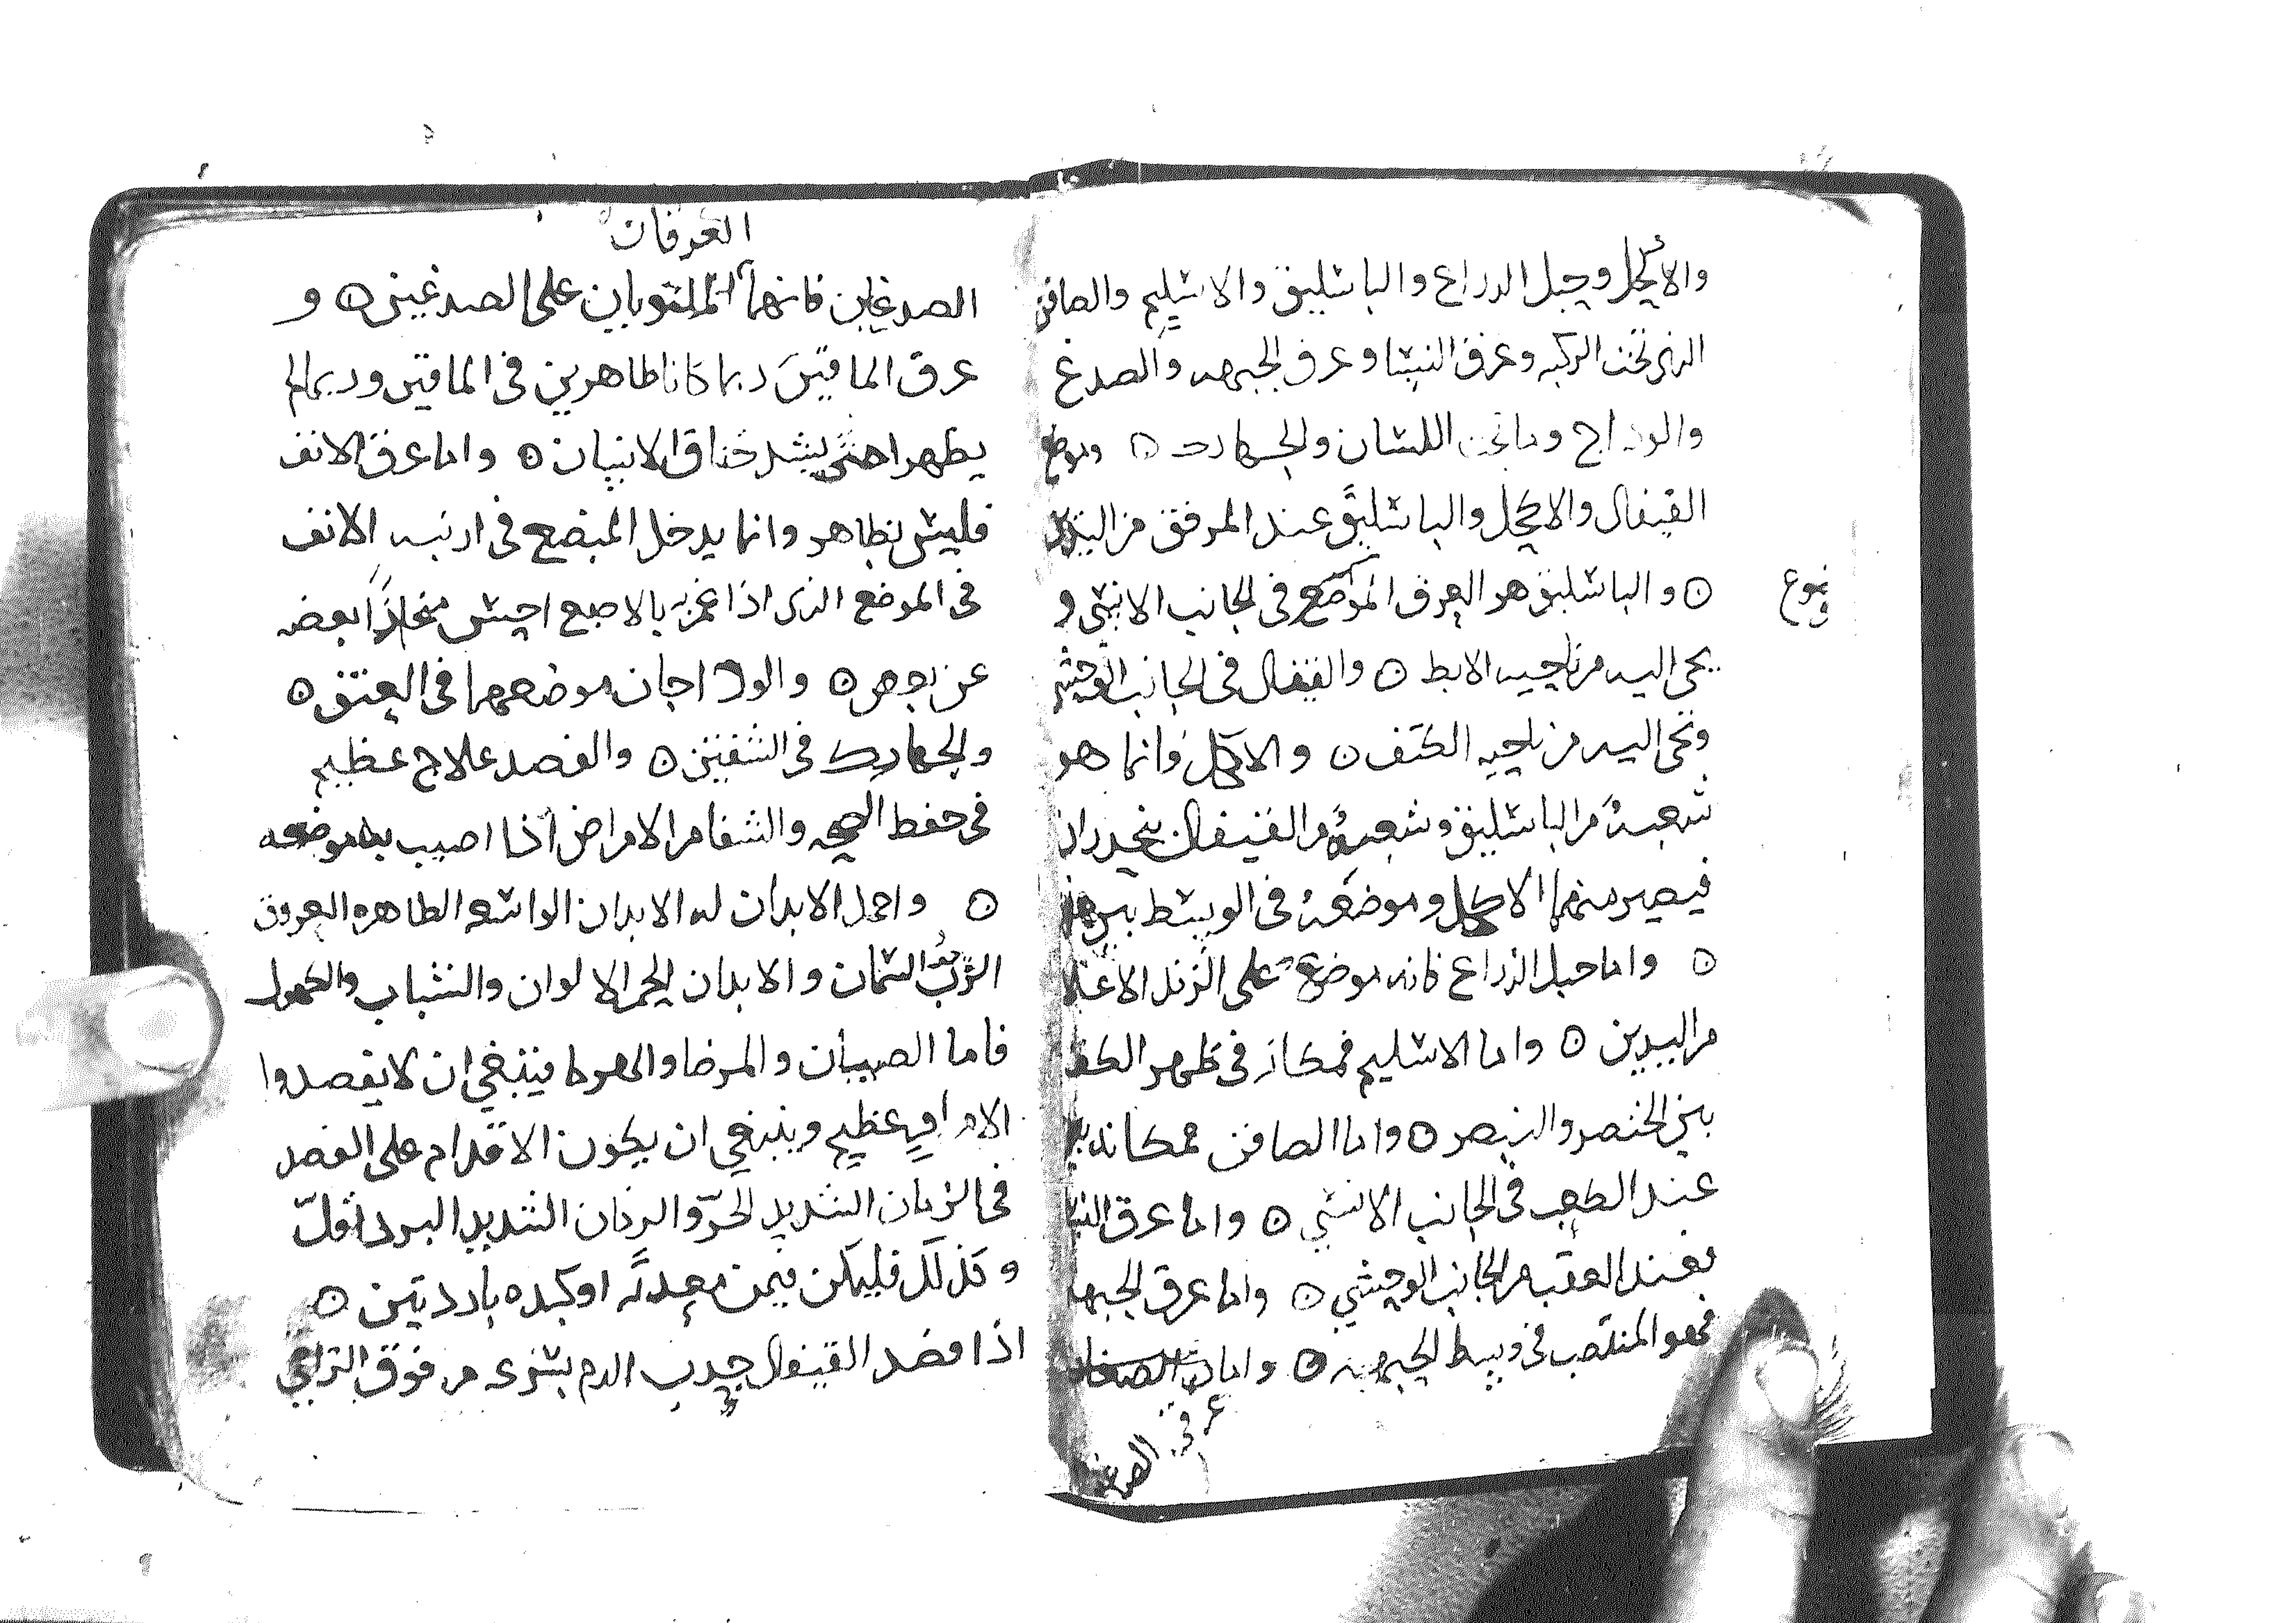 والاكحل وحبل الدراع والباسليق والاسليم والصافن
الذى تحت الركبه وعرق النسا وعرق الجبهه والصدغ
والوداج وما تحت اللسان والجهارك ⊙ وموضع
القيفال والاكحل والباسليق عند المرفق من اليد
⊙ والباسليق هو العرق الموضع فى الجانب الانسى و
نوع
يجى اليه من ناحيه الابط ⊙ والقيفال فى الجانب الوحشى
وتجى اليه من ناحيه الكتف ⊙ والاكحل وانما هو
شعبة من الباسليق وشعبة من القيفال ينحدران
فيصير منهما الاكحل وموضعة فى الوسط بين هذ
⊙ واما حبل الذراع فانه موضع على الزند الاعلا
من اليدين ⊙ واما الاسليم فمكانه فى ظهر الكف
بين الخنصر والبنصر ⊙ واما الصافن فمكانه
عند الكعب فى الجانب الانسي ⊙ واما عرق النسا
فعند العقب من الجانب الوحشي ⊙ واما عرق الجبهه
فهو المنتصب فى وسط الجبهه ⊙ واما
عرقى الصدغ
العرقان
الصدغاين فانهما الملتويان على الصدغين ⊙ و
عرق الماقين ربما كانا ظاهرين فى الماقين وربما لم
يظهرا حتى يشد خناق الانسان ⊙ واما عرق الانف
فليس بظاهر وانما يدخل المبضع فى ارنبه الانف
فى الموضع الذى اذا غمز به بالاصبع احس منحازا بعضه
عن بعض ⊙ والوداجان موضعهما فى العنق ⊙
والجهارك فى الشفتين ⊙ والفصد علاج عظيم
فى حفظ الصحه والشفا من الامراض اذا اصيب به موضعه
⊙ واحمل الابدان له الابدان الواسعه الظاهره العروق
الزب السمان والابدان الحمر الالوان والشباب والكهول
فاما الصبيان والمرضا والهرما فينبغي ان لا يفصدوا
الا من امر عظيم وينبغي ان يكون الاقدام على الفصد
فى الزمان الشديد الحرّ والزمان الشديد البرد اقلّ
وكذلك فليكن فيمن معدته او كبده باردتين ⊙
اذا فصد القيفال جدب الدم بسرعه من فوق التراقي